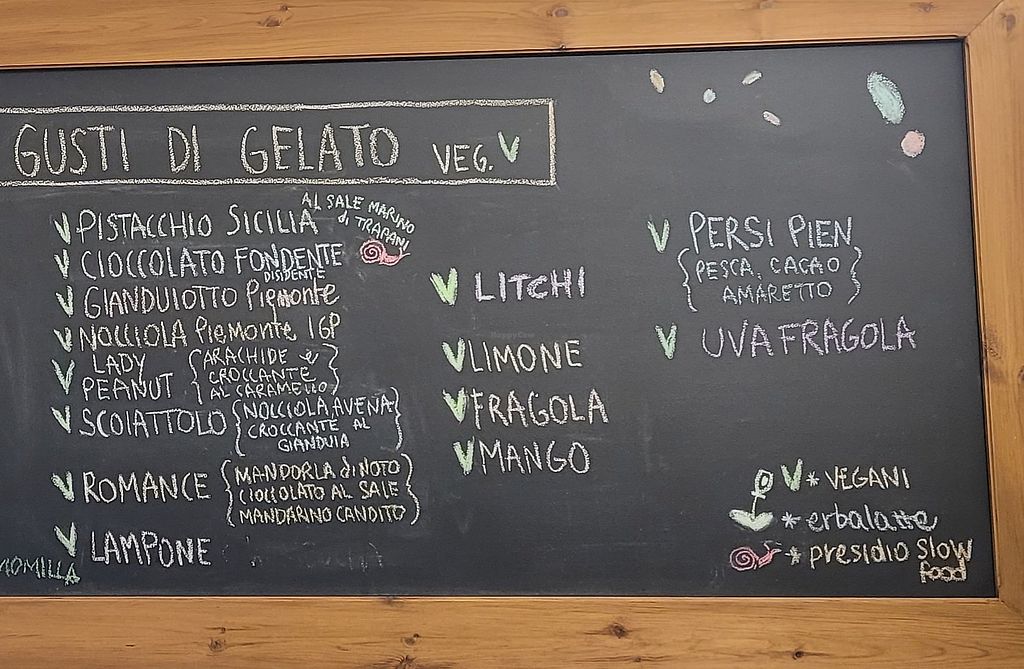 GUSTI DI GELATO VEG. V
V PISTACCHIO SICILIA
AL SALE MARINO
di TRAPANI
V CIOCCOLATO FONDENTE
DISIDENTE
V GIANDUIOTTO Piemonte
V NOCCIOLA Piemonte IGP
V LADY
PEANUT
{ARACHIDE e
CROCCANTE
AL CARAMELLO}
V SCOIATTOLO
{NOCCIOLA, AVENA
CROCCANTE AL
GIANDUIA}
V ROMANCE
{MANDORLA di NOTO
CIOCCOLATO AL SALE
MANDARINO CANDITO}
V LAMPONE
OMILLA
V LITCHI
V LIMONE
V FRAGOLA
V MANGO
V PERSI PIEN
{PESCA, CACAO
AMARETTO}
V UVA FRAGOLA
V * VEGANI
* erbalatte
* presidio Slow
food